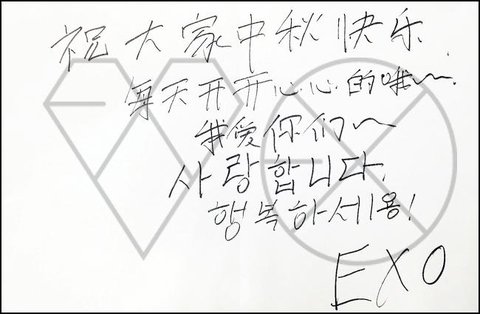 祝大家中秋快乐.
每天开开心心的哦~.
我爱你们~
사랑합니다.
행복하세용!
EXO